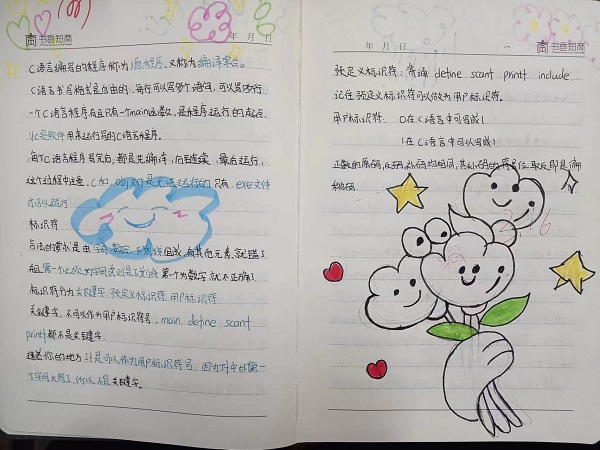 书香知商
年 月 日
C语言编写的程序称为源程序,又称为编译单位。
C语言书写格式是自由的,每行可以写多个语句,可以写多行
一个C语言程序有且只有一个main函数,是程序运行的起点。
VC是软件,用来运行写的C语言程序。
每个C语言程序写完后,都是先编译,后链接,最后运行,
这个过程中注意.C和.obj文件是无法运行的只有.exe文件
才可以运行
标识符
合法的要求是由字母,数字,下划线组成,有其他元素,就错了
第一个必须为字母或则是下划线 第一个为数字,就不正确了
标识符分为关键字,预定义标识符,用户标识符.
关键字:不可以作为用户标识符号,main, define scanf
printf都不是关键字.
迷惑你的地方If是可以作为用户标识符号,因为If中的第一
个字母大写了,所以不是关键字.
年 月 日
书香知商
预定义标识符:背诵 define scanf printf include.
记住预定义标识符可以做为用户标识符。
用户标识符. 0在C语言中可写成1
1在C语言中可以写成1
正数的原码,反码,补码均相同,